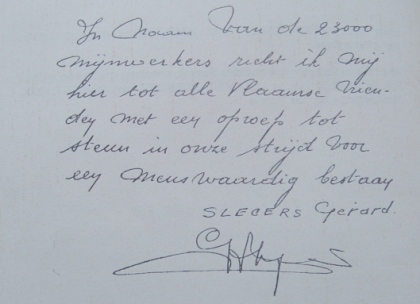 In Naam Van de 23000
mijnwerkers richt ik mij
hier tot alle Vlaamse Vrien-
den met een oproep tot
steun in onze strijd Voor
een Menswaardig bestaan
SLEGERS Gerard.